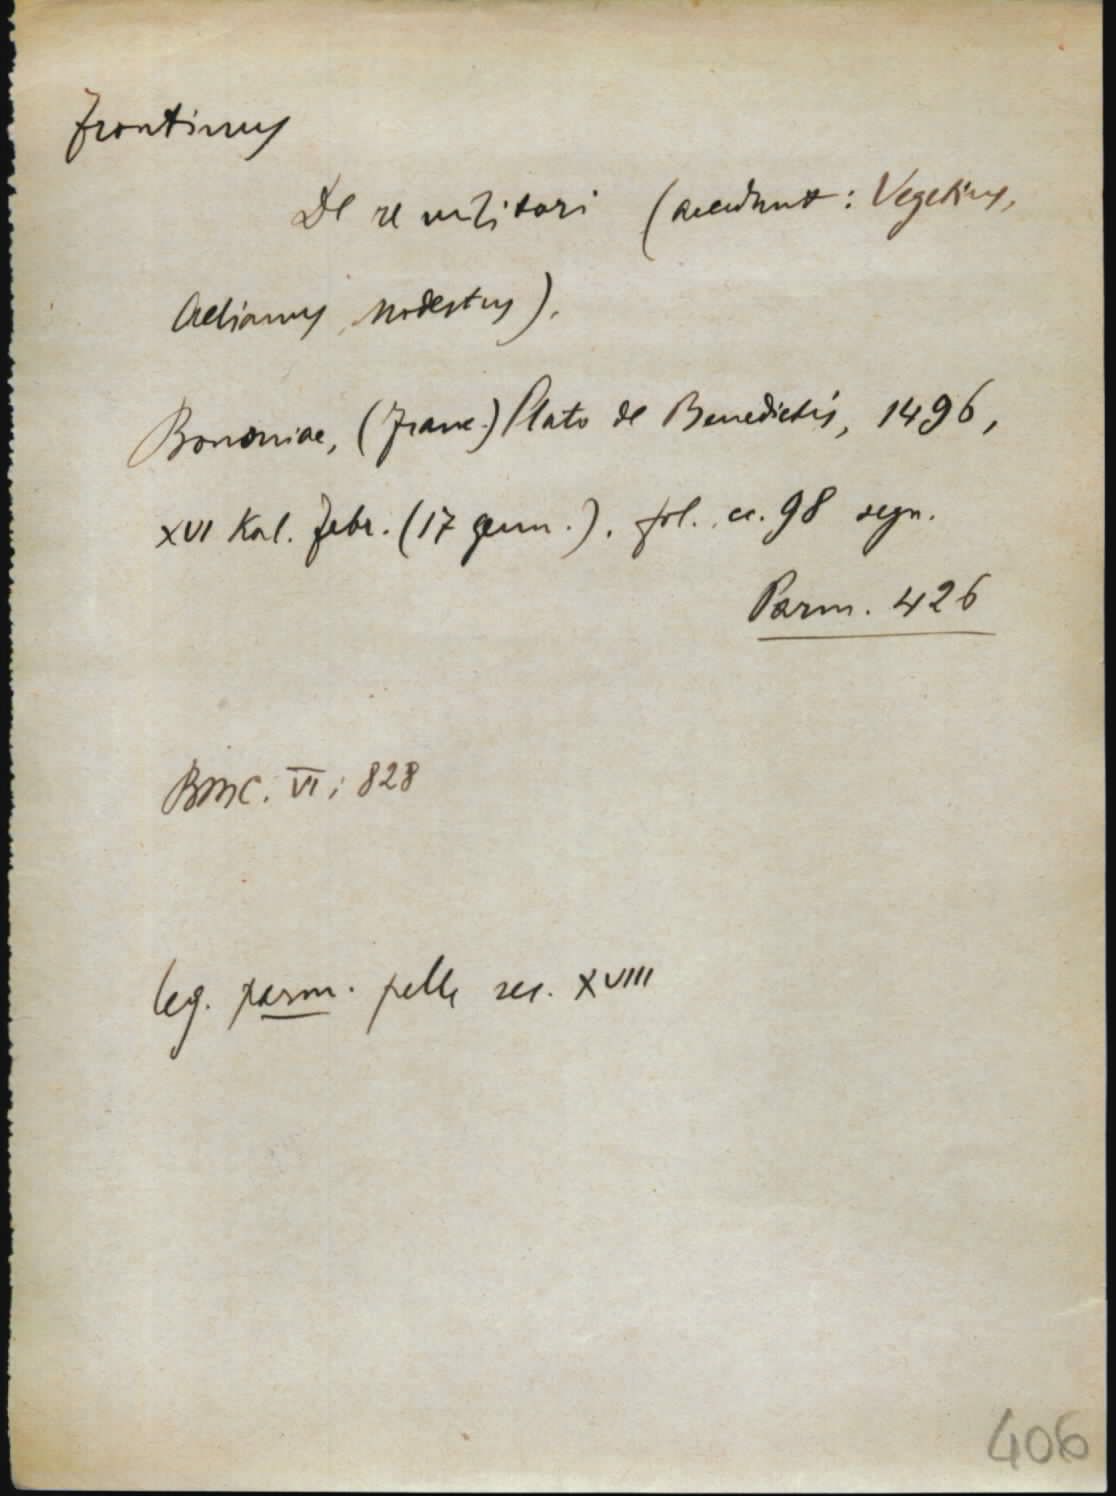 Frontinus
De re militari (accedunt: Vegetius,
Aelianus, Modestus).
Bononiae, (Franc.) Plato de Benedictis, 1496,
XVI Kal. Febr. (17 genn.). fol. cc. 98 segn.
Parm. 426
BMC. VI; 828
leg. parm. pelle sec. XVIII
406